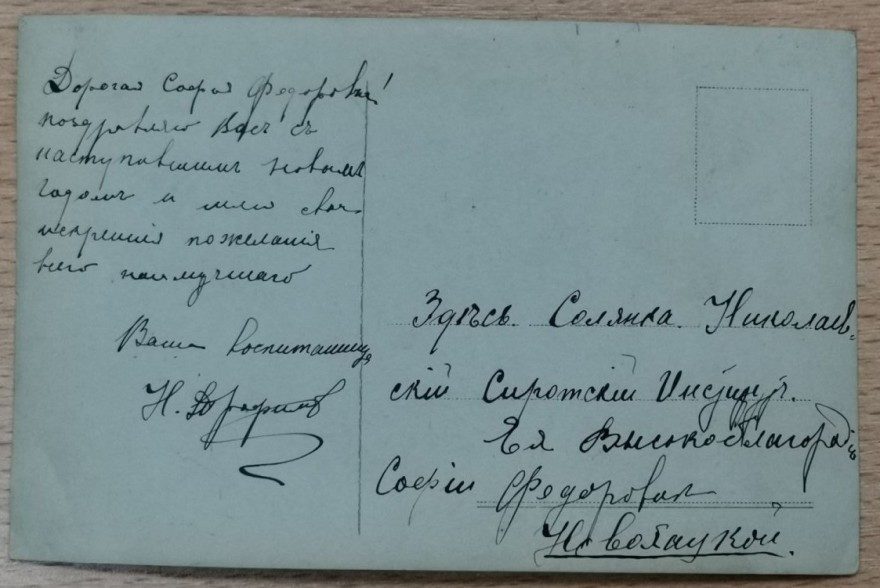 Дорогая Софья Федоровна!
поздравляю Васъ съ
наступившимъ новымъ
годомъ и шлю свои
искреннія пожеланія
всего наилучшаго
Ваша воспитанница
Н.
Здѣсь. Солянка. Николаев-
скій Сиротскій Институтъ.
Ея Высокоблагород
Софіи Федоровнѣ